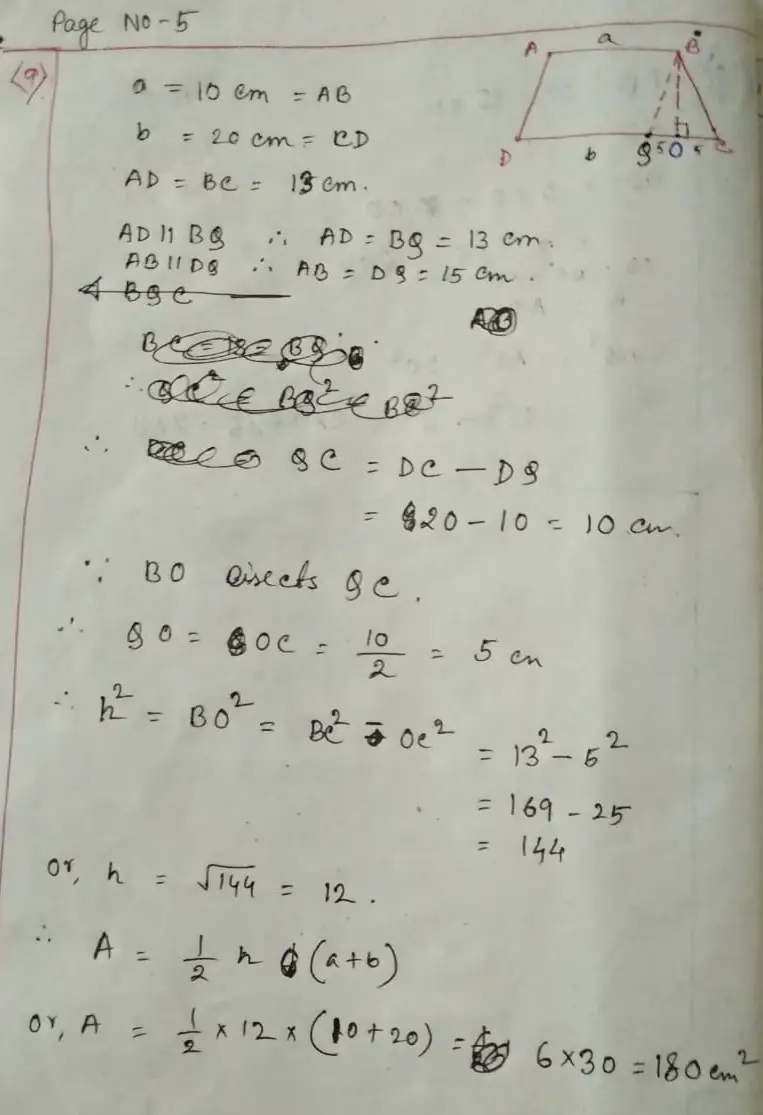 Page No-5
<9>
A a B
D b Q 5 O 5 C
a = 10 cm = AB
b = 20 cm = CD
AD = BC = 13 cm.
AD || BQ ∴ AD = BQ = 13 cm.
AB || DQ ∴ AB = DQ = 15 cm.
BQC
∴ QC = DC - DQ
= 20 - 10 = 10 cm.
∵ BO bisects QC.
∴ QO = OC = 10/2 = 5 cm
∴ h² = BO² = BC² - OC² = 13² - 5²
= 169 - 25
= 144
or, h = √144 = 12.
∴ A = 1/2 h (a+b)
or, A = 1/2 × 12 × (10 + 20) = 6 × 30 = 180 cm²